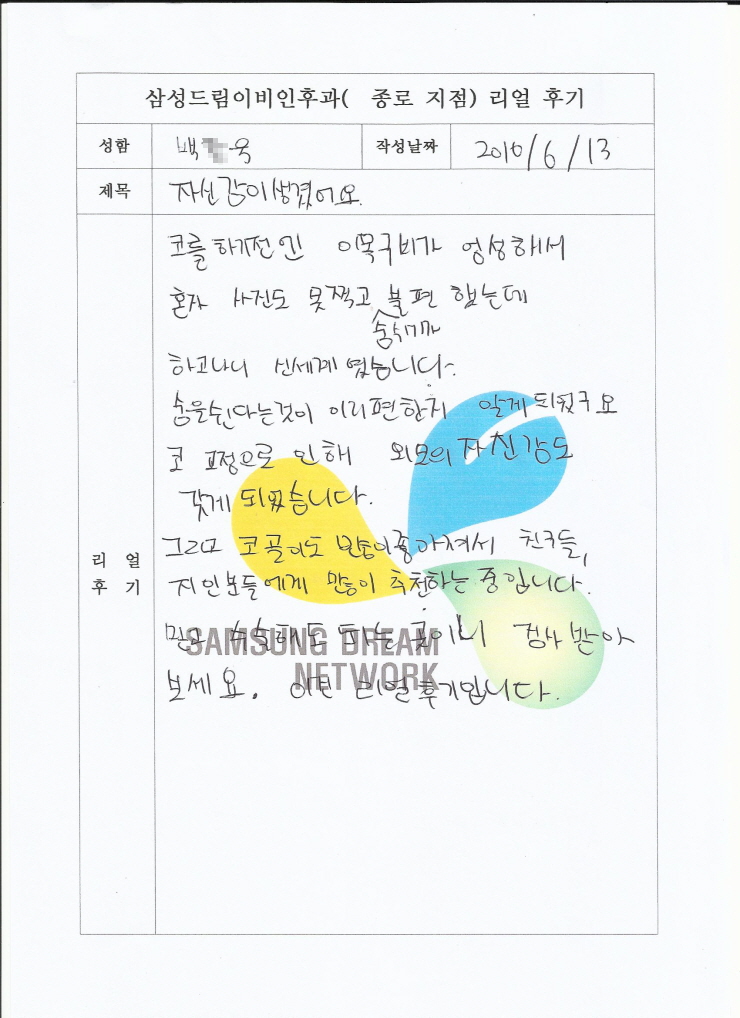 삼성드림이비인후과( 종로 지점) 리얼 후기
성함 백 욱 작성날짜 2016/6/13
제목 자신감이생겼어요
코를하기전엔 이목구비가 엉성해서
혼자 사진도 못찍고 불편 했는데
숨쉬기까
하고나니 신세계였습니다.
숨을쉰다는것이 이리편한지 알게되었구요
코 교정으로 인해 외모의 자신감도
갖게 되었습니다.
그리고 코골이도 많이좋아져서 친구들,
리 얼
후 기
지인분들에게 많이 추천하는 중입니다.
믿고 수술해도 되는 곳이니 검사 받아
보세요. 이번 리얼후기입니다.
SAMSUNG DREAM
NETWORK